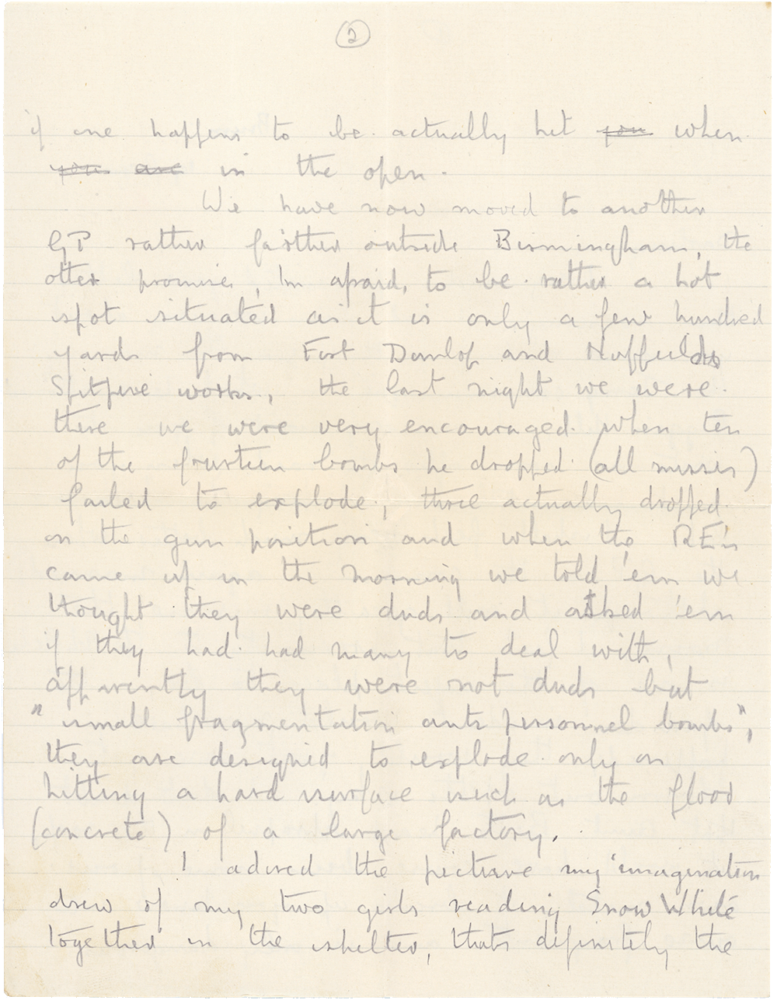 2
if one happens to be actually hit you when
you are in the open.
We have now moved to another
GP rather farther outside Birmingham, the
other promises, Im afraid, to be rather a hot
spot situated as it is only a few hundred
yards from Fort Dunlop and Nuffields
Spitfire works, the last night we were
there we were very encouraged when ten
of the fourteen bombs he dropped (all misses)
failed to explode, three actually dropped
on the gun position and when the RE's
came up in the morning we told 'em we
thought they were duds and asked 'em
if they had had many to deal with,
apparently they were not duds but
"small fragmentation anti personnel bombs",
they are designed to explode only on
hitting a hard surface such as the floor
(concrete) of a large factory.
I adored the picture my imagination
drew of my two girls reading Snow White
together in the shelter, thats definitely the